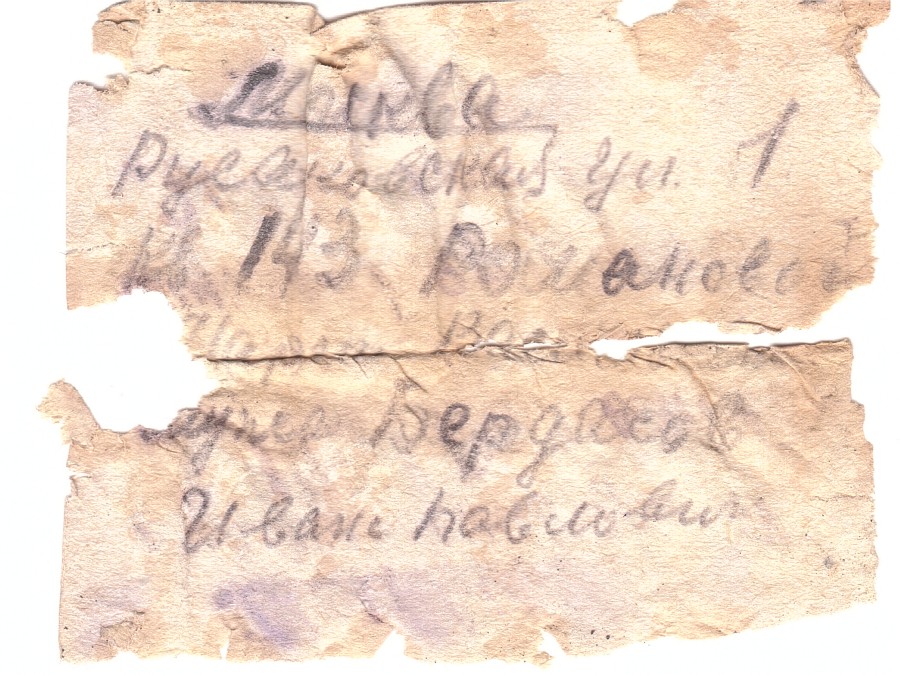 Москва
Русаковская ул. 1
кв. 143 Романовой
Бердясов
Иван Павлович